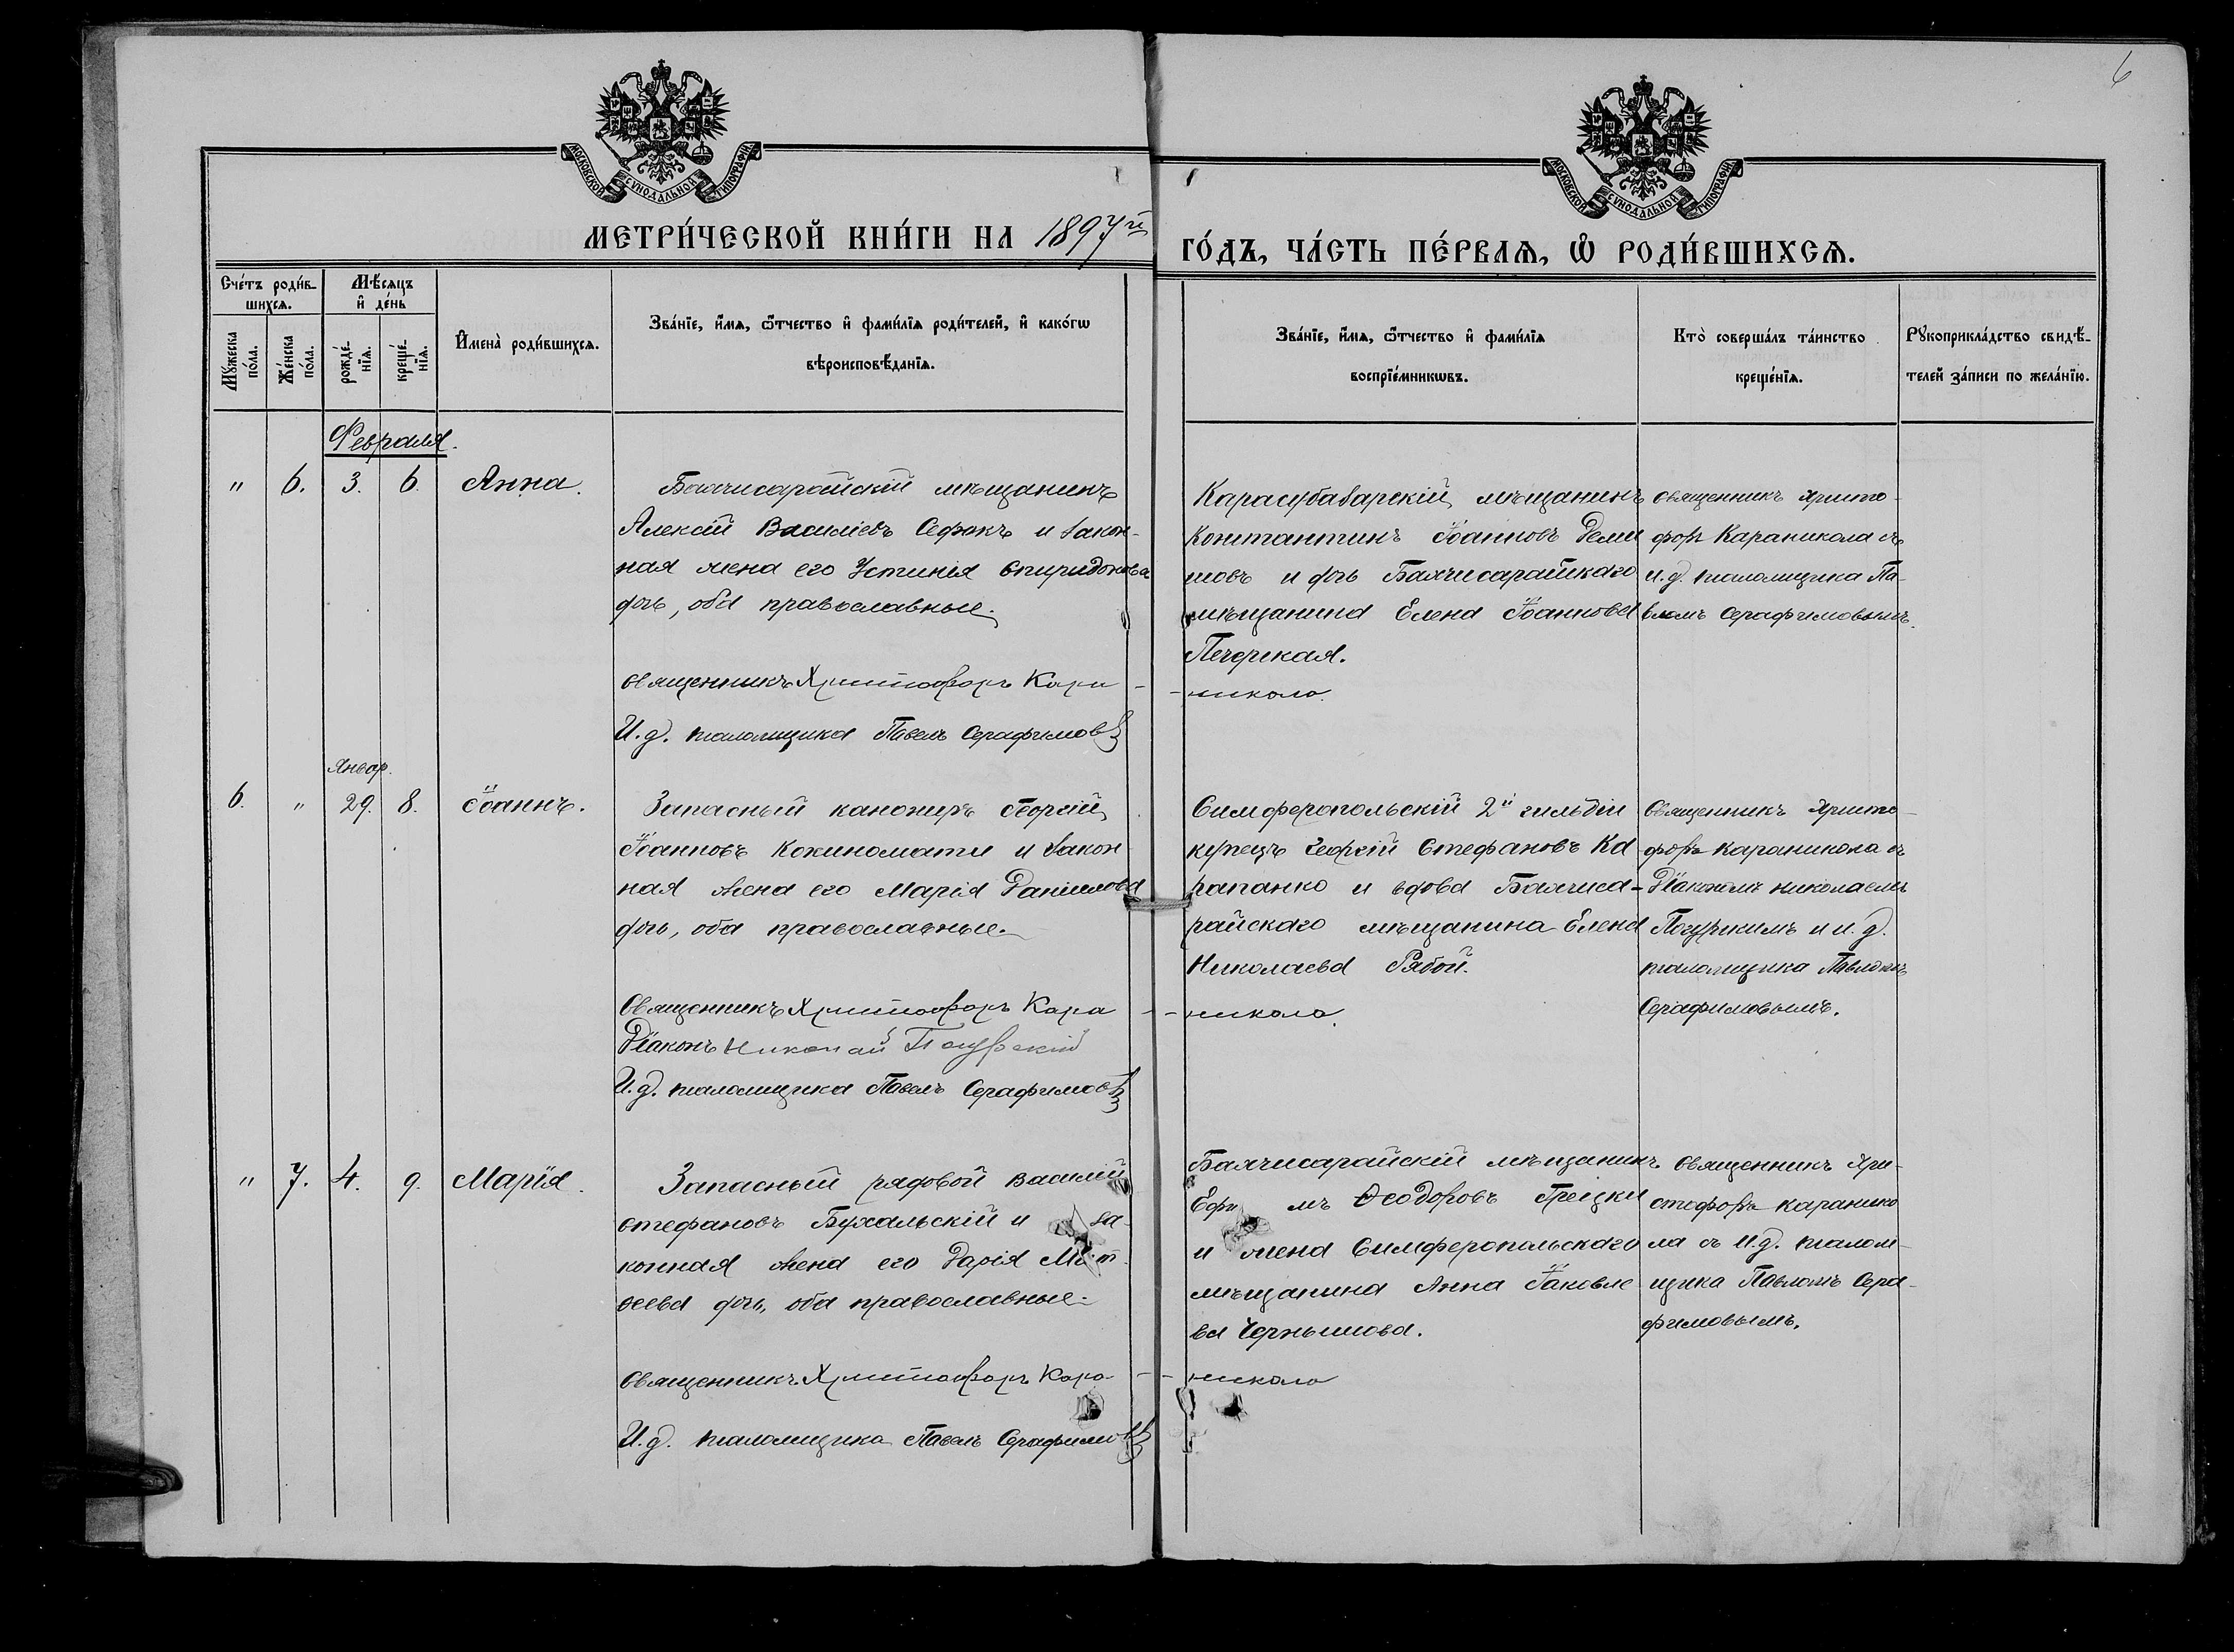 6
МОСКОВСКОЙ СѴНОДАЛЬНОЙ ТИПОГРАФІИ
МОСКОВСКОЙ СѴНОДАЛЬНОЙ ТИПОГРАФІИ
МЕТРИ́ЧЕСКОЙ КНИ́ГИ НА 1897й
ГО́ДЪ, ЧА́СТЬ ПЕ́РВАѦ, Ѡ҆ РОДИ́ВШИХСѦ.
Сче́тъ роди́в-
шихсѧ.
Мѣ́сѧцъ
и҆ де́нь
Мꙋ́жеска
по́ла.
Же́нска
по́ла.
рожде́-
нїѧ.
креще́-
нїѧ.
И҆мена̀ роди́вшихсѧ.
Зва́нїе, и҆́мѧ, ѻ҆́тчество и҆ фами́лїѧ роди́телей, и҆ како́гѡ
вѣроисповѣ́данїѧ.
Зва́нїе, и҆́мѧ, ѻ҆́тчество и҆ фами́лїѧ
воспрїе́мникѡвъ.
Кто̀ соверша́лъ та́инство
креще́нїѧ.
Рꙋкоприкла́дство свидѣ́-
телей за́писи по жела́нїю.
Февраля.
" 6. 3. 6. Анна.
Бахчисарайскій мѣщанинъ
Алексій Василіевъ и закон-
ная жена его Устинія Спиридонова
дочь, оба православные.
Священникъ Христофоръ Кара-
И.д. псаломщика Павелъ Серафимовъ
Карасубазарскій мѣщанинъ
Константинъ Іоанновъ Деми
шовъ и дочь Бахчисарайскаго
мѣщанина Елена Іоаннова
Печерская.
-никола.
Священникъ Христо-
форъ Караникола съ
и.д. псаломщика Па-
вломъ Серафимовымъ.
Январ.
6. " 29. 8. Іоаннъ.
Запасный канониръ Георгій
Іоанновъ Кокиномати и закон-
ная жена его Марія Даніилова
дочь, оба православные.
Священникъ Христофоръ Кара-
Діаконъ Николай
И.д. псаломщика Павелъ Серафимовъ
Симферопольскій 2й гильдіи
купецъ Георгій Стефановъ Ка
рапанко и вдова Бахчиса-
райскаго мѣщанина Елена
Николаева Рябой.
-никола.
Священникъ Христо-
форъ Караникола съ
Діакономъ Николаемъ
и и.д.
псаломщика Павломъ
Серафимовымъ.
" 7. 4. 9. Марія.
Запасный рядовой Василій
Стефановъ Бухальскій и за-
конная жена его Дарія Мат-
ѳеева дочь, оба православные.
Священникъ Христофоръ Кара-
И.д. псаломщика Павелъ Серафимовъ
Бахчисарайскій мѣщанинъ
Ефи мъ Ѳеодоровъ Грецки
и жена Симферопольскаго
мѣщанина Анна Іаковле
ва Чернышова.
-никола
Священникъ Хри-
стофоръ Каранико
ла съ и.д. псалом-
щика Павломъ Сера-
фимовымъ.